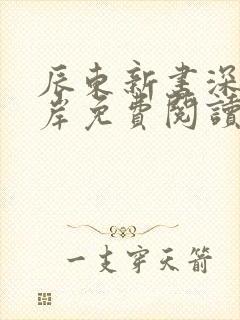 辰東新書深
岸免費閱讀
一支穿天箭